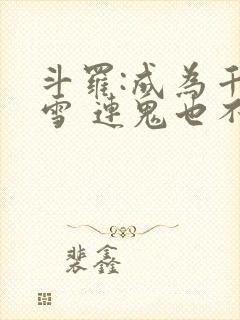 斗羅:成為千
雪 連鬼也不
裴鑫